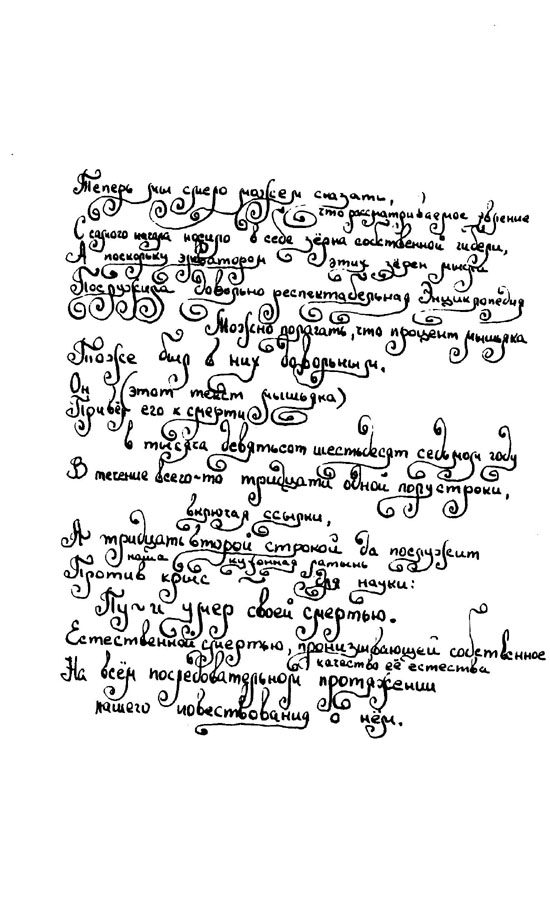 Теперь мы смело можем сказать,
что рассматриваемое явление
С самого начала носило в себе зёрна собственной гибели,
А поскольку экватором этих зёрен мысла
Послужила довольно респектабельная Энциклопедия
Можно полагать, что процент мышьяка
Тоже был в них довольным.
Он (этот текст мышьяка)
Привёл его к смерти
в тысяча девятьсот шестьдесят седьмом году
В течение всего-то тридцати одной полустроки,
включая ссылки,
А тридцать второй строкой да послужит
наша кухонная латынь
Против крыс для науки:
Пу-и умер своей смертью.
Естественной смертью, пронизывающей собственное
качество её естества
На всём последовательном протяжении
нашего повествования о нём.